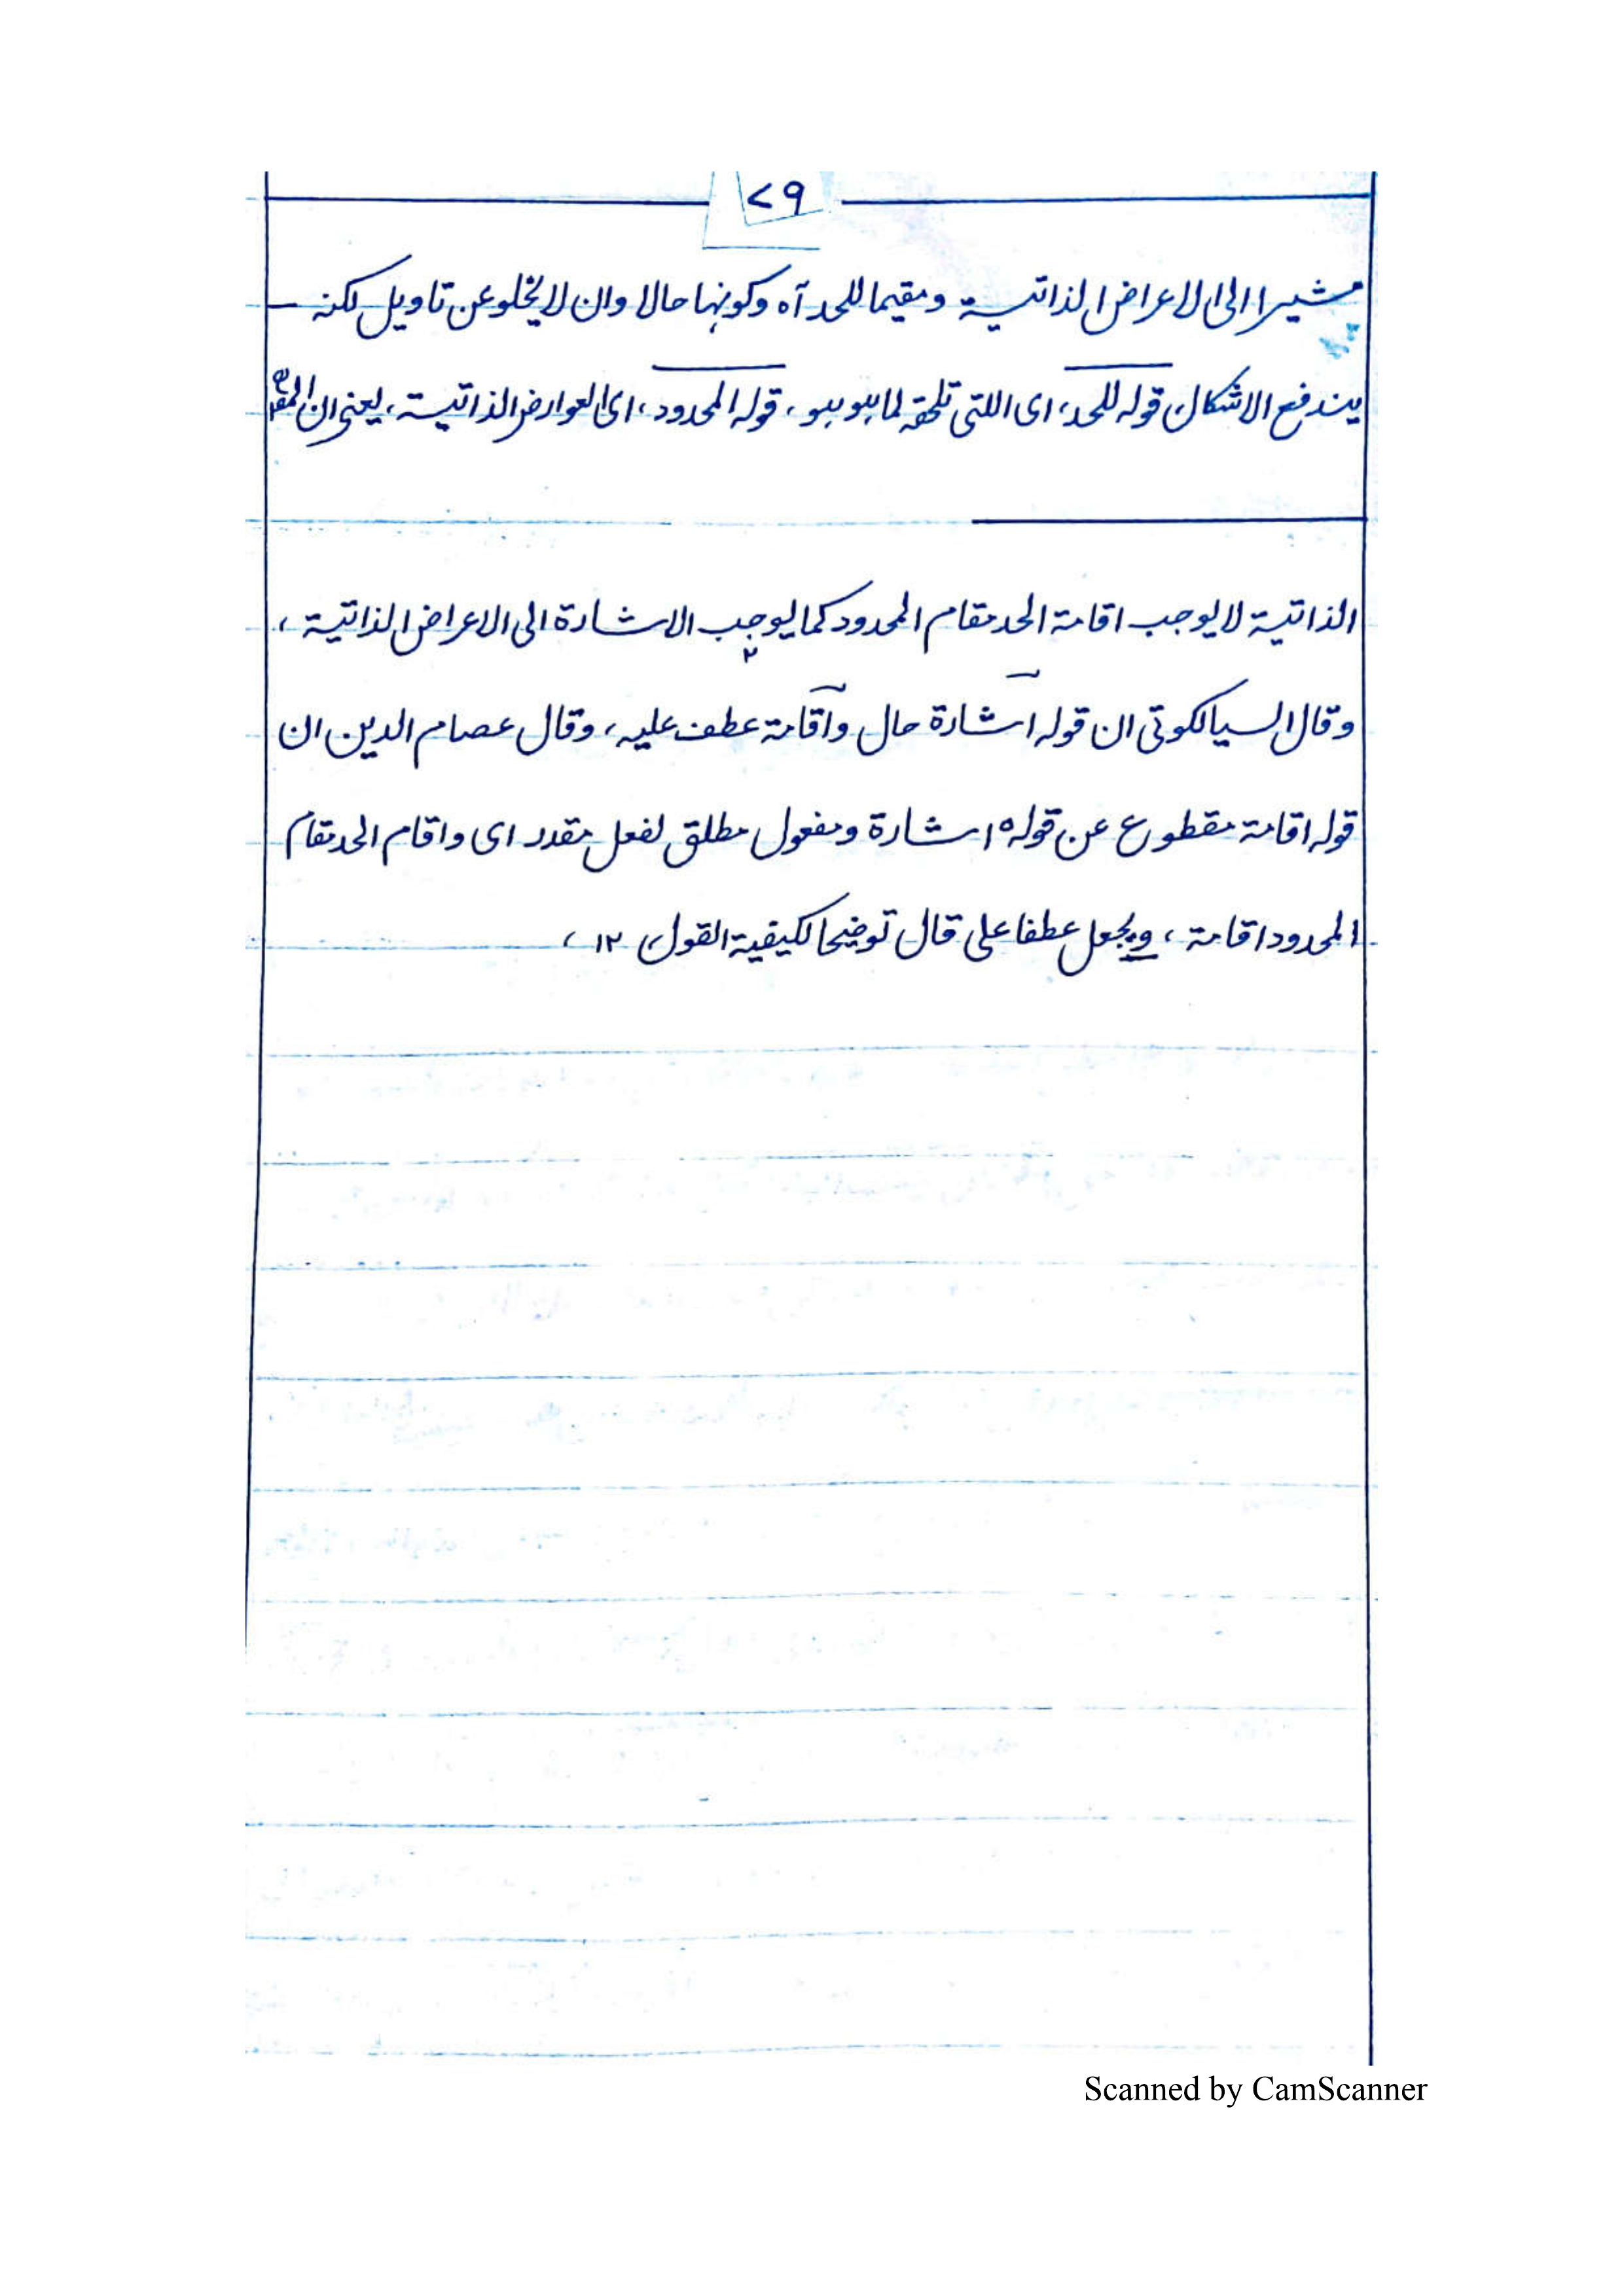 ۷۹
مشيرا الى الاعراض الذاتية ومقيما للحد آه وكونها حالا وان لا يخلو عن تاويل لكنه
يندفع الاشكال، قوله للحد، اى اللتى تلحقه لما هو هو، قوله المحدود، اى العوارض الذاتية، يعنى ان
الذاتية لا يوجب اقامة الحد مقام المحدود كما يوجب الاشارة الى الاعراض الذاتية،
وقال السيالكوتى ان قوله اشارة حال واقامة عطف عليه، وقال عصام الدين ان
قوله اقامة مقطوع عن قوله اشارة ومفعول مطلق لفعل مقدر اى واقام الحد مقام
المحدود اقامة، ويجعل عطفا على قال توضيحا لكيفية القول، ۱۲،
Scanned by CamScanner